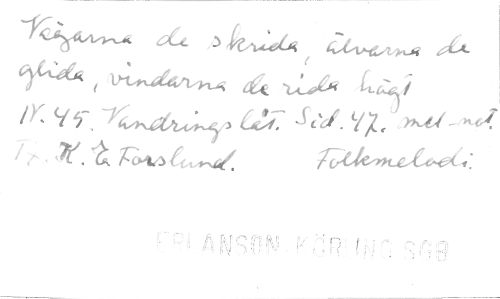 Vågarna de skrida, älvarna de
glida, vindarna de rida högt
N. 45. Vandringslåt. Sid. 47. mel-not.
Tx. K. E. Forslund. Folkmelodi.
ERLANSON-KÖRLING SGB